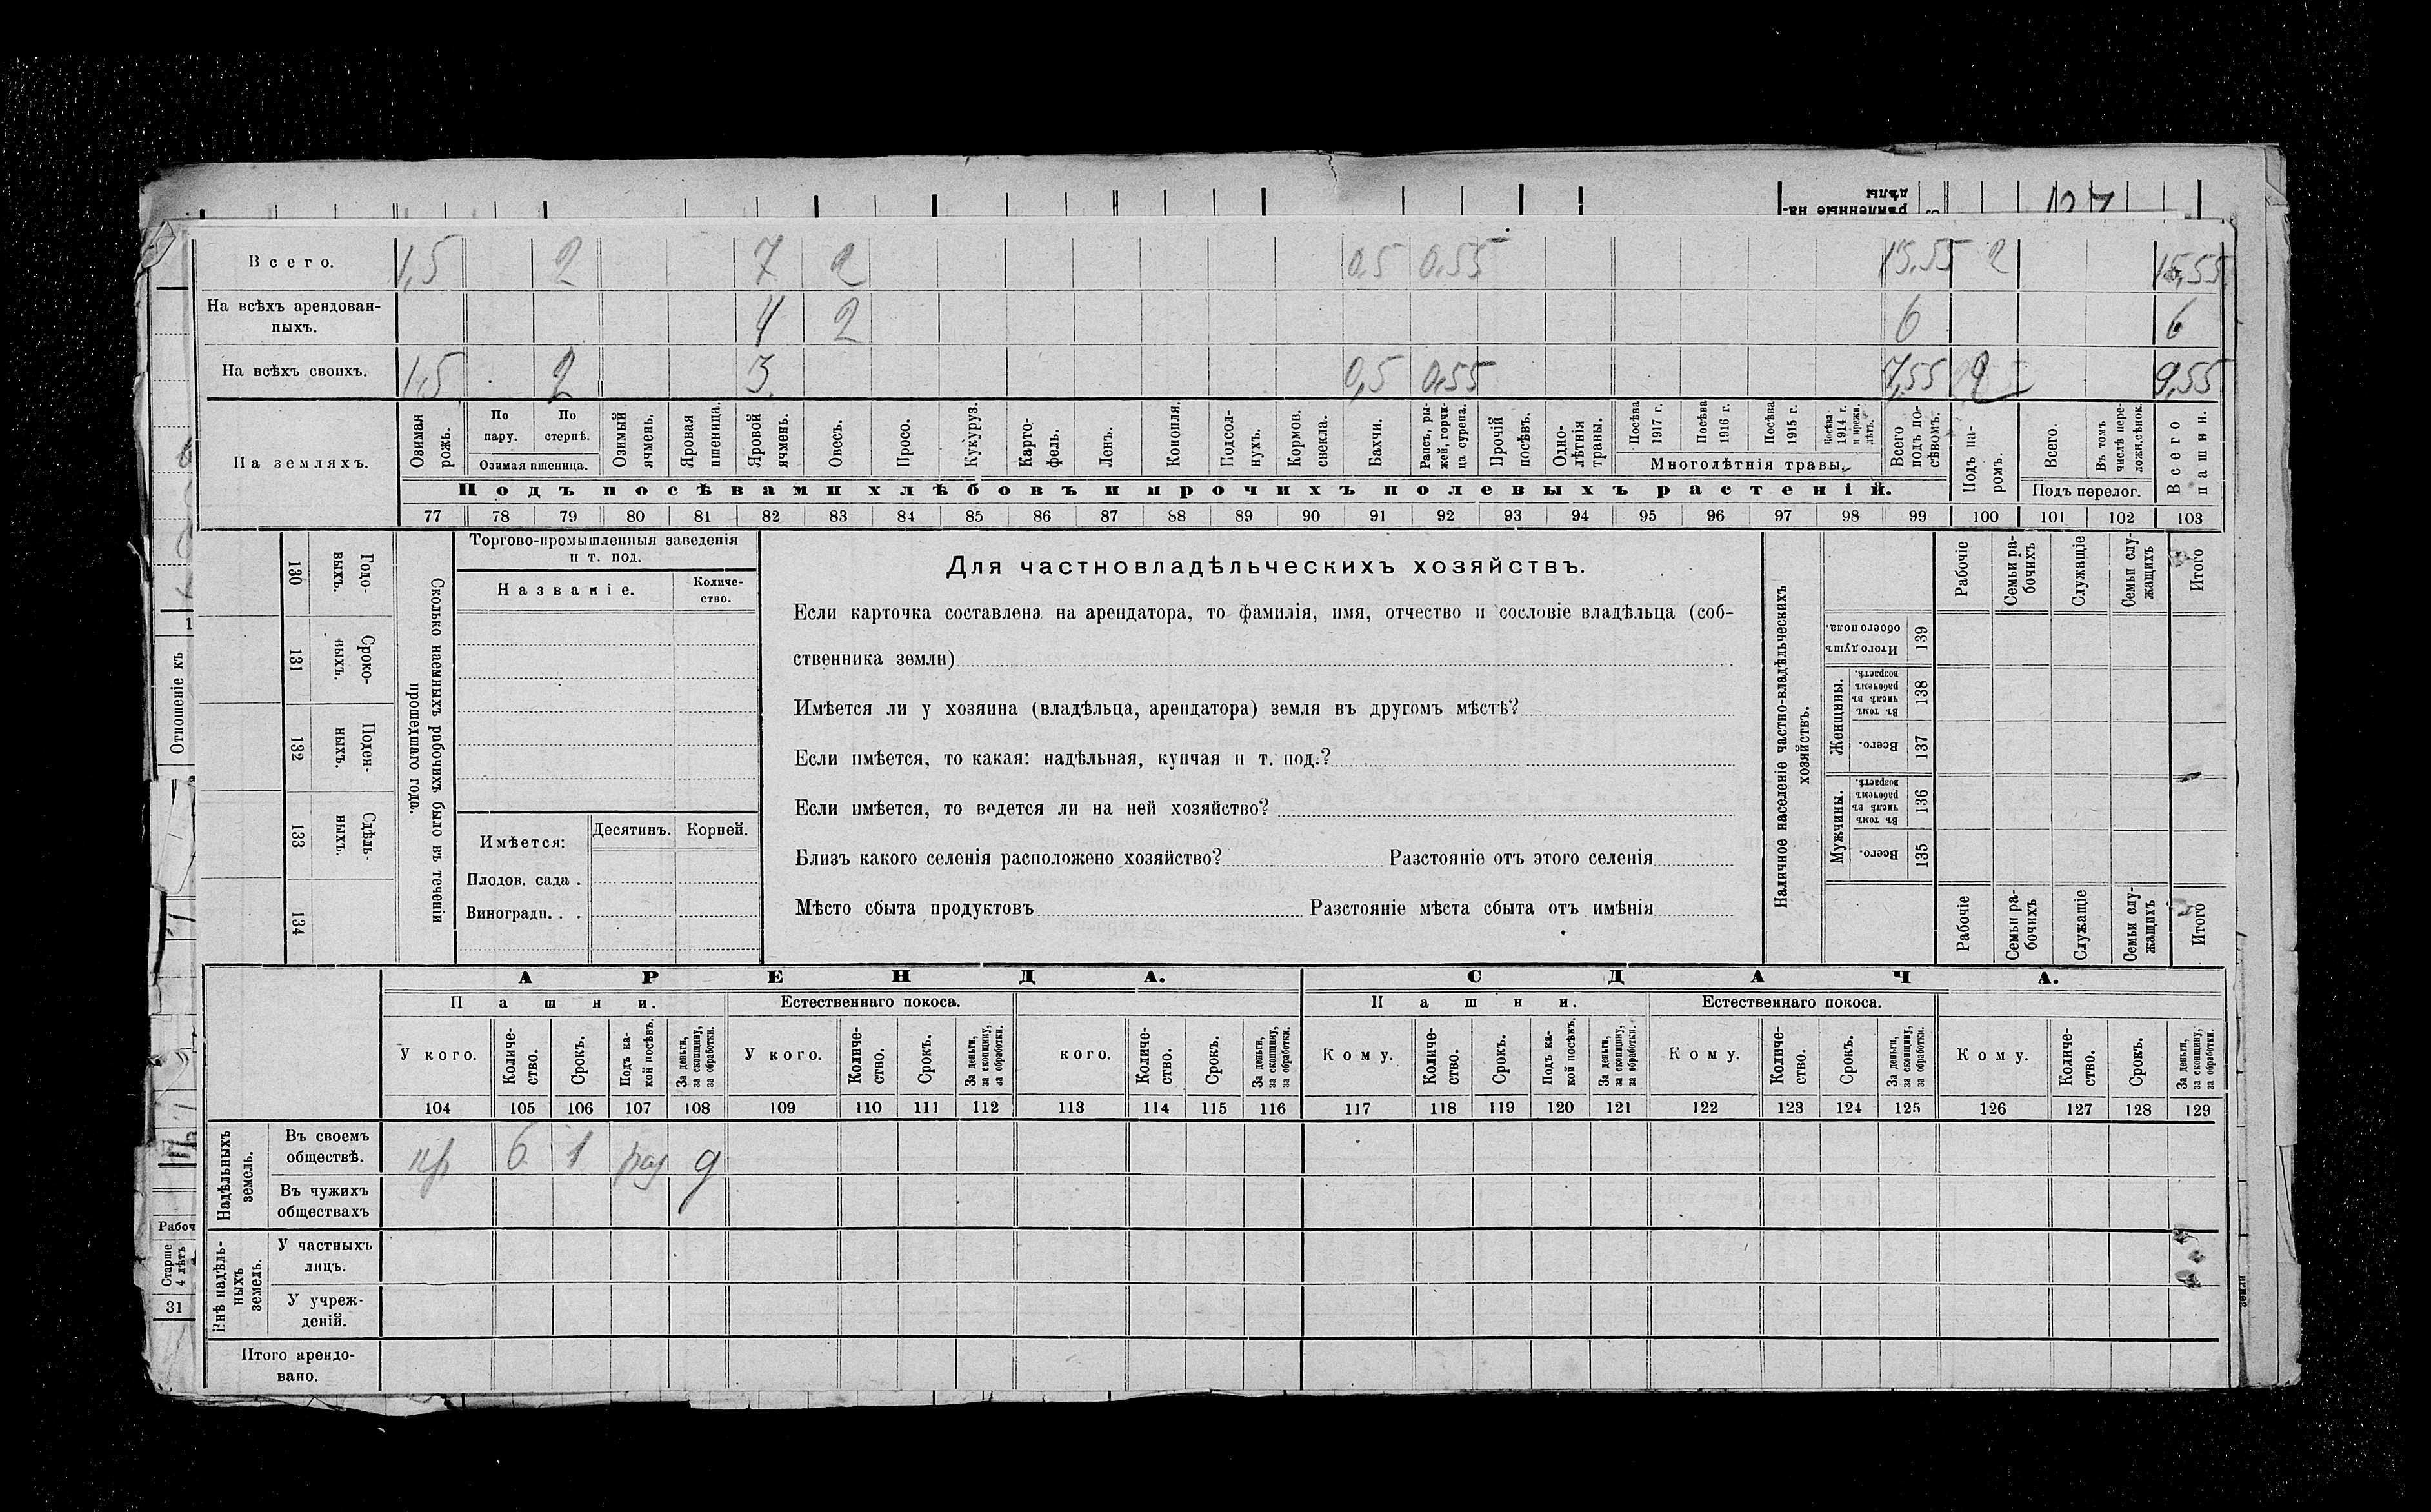 рѣпленные на-
дѣлы
127
Всего. 1,5 2 7 2 0,5 0,55 13,55 2 15,55
На всѣхъ арендован-
ныхъ. 4 2 6 6
На всѣхъ своихъ. 1,5 2 3 0,5 0,55 7,55 2 9,55
На земляхъ.
Озимая рожь.
По пару.
По стернѣ.
Озимая пшеница.
Озимый ячмень.
Яровая пшеница.
Яровой ячмень.
Овесъ.
Просо.
Кукуруз.
Карто-
фель.
Ленъ.
Конопля.
Подсол-
нухъ.
Кормов. свекла.
Бахчи.
Рапсъ, ры-
жей, горчи-
ца сурепа.
Прочій посѣвъ.
Одно-
лѣтнія травы.
Посѣва 1917 г.
Посѣва 1916 г.
Посѣва 1915 г.
Посѣва 1914 г. и прежн. лѣтъ.
Многолѣтнія травы.
Всего подъ по-
сѣвомъ.
Подъ па-
ромъ.
Всего.
Въ томъ числѣ пере-
ложн. сѣнок.
Подъ перелог.
Всего пашни.
Подъ посѣвами хлѣбовъ и прочихъ полевыхъ растеній.
77 78 79 80 81 82 83 84 85 86 87 88 89 90 91 92 93 94 95 96 97 98 99 100 101 102 103
Отношеніе къ
130 Годо-
выхъ.
131 Сроко-
ныхъ.
132 Поден-
ныхъ.
133 Сдѣль-
ныхъ.
134
Сколько наемныхъ рабочихъ было въ теченіи
прошедшаго года.
Торгово-промышленныя заведенія
и т. под.
Названіе.
Количе-
ство.
Имѣется: Десятинъ. Корней.
Плодов. сада .
Виноградн. . .
Для частновладѣльческихъ хозяйствъ.
Если карточка составлена на арендатора, то фамилія, имя, отчество и сословіе владѣльца (соб-
ственника земли)
Имѣется ли у хозяина (владѣльца, арендатора) земля въ другомъ мѣстѣ?
Если имѣется, то какая: надѣльная, купчая и т. под.?
Если имѣется, то ведется ли на ней хозяйство?
Близъ какого селенія расположено хозяйство? Разстояніе отъ этого селенія
Мѣсто сбыта продуктовъ Разстояніе мѣста сбыта отъ имѣнія
Наличное населеніе частно-владѣльческихъ
хозяйствъ.
Рабочіе
Семьи ра-
бочихъ
Служащіе
Семьи слу-
жащихъ
Итого
Итого душъ обоего пола. 139
Женщины.
Въ томъ числѣ въ рабочемъ возрастѣ. 138
Всего. 137
Мужчины.
Въ томъ числѣ въ рабочемъ возрастѣ. 136
Всего. 135
Рабочіе
Семьи ра-
бочихъ
Служащіе
Семьи слу-
жащихъ
Итого
АРЕНДА. СДАЧА.
Пашни. Естественнаго покоса. Пашни. Естественнаго покоса.
У кого. Количе-
ство. Срокъ. Подъ ка-
кой посѣвъ. За деньги, за скопщину, за обработки.
У кого. Количе-
ство. Срокъ. За деньги, за скопщину, за обработки.
кого. Количе-
ство. Срокъ. За деньги, за скопщину, за обработки.
Кому. Количе-
ство. Срокъ. Подъ ка-
кой посѣвъ. За деньги, за скопщину, за обработки.
Кому. Количе-
ство. Срокъ. За деньги, за скопщину, за обработки.
Кому. Количе-
ство. Срокъ. За деньги, за скопщину, за обработки.
104 105 106 107 108 109 110 111 112 113 114 115 116 117 118 119 120 121 122 123 124 125 126 127 128 129
Надѣльныхъ
земель.
Въ своемъ
обществѣ. кр 6 1 раз д
Въ чужихъ
обществахъ
Внѣ надѣль-
ныхъ
земель.
У частныхъ
лицъ.
У учреж-
деній.
Итого арендо-
вано.
Рабоч
Старше
4 лѣтъ
31
земли